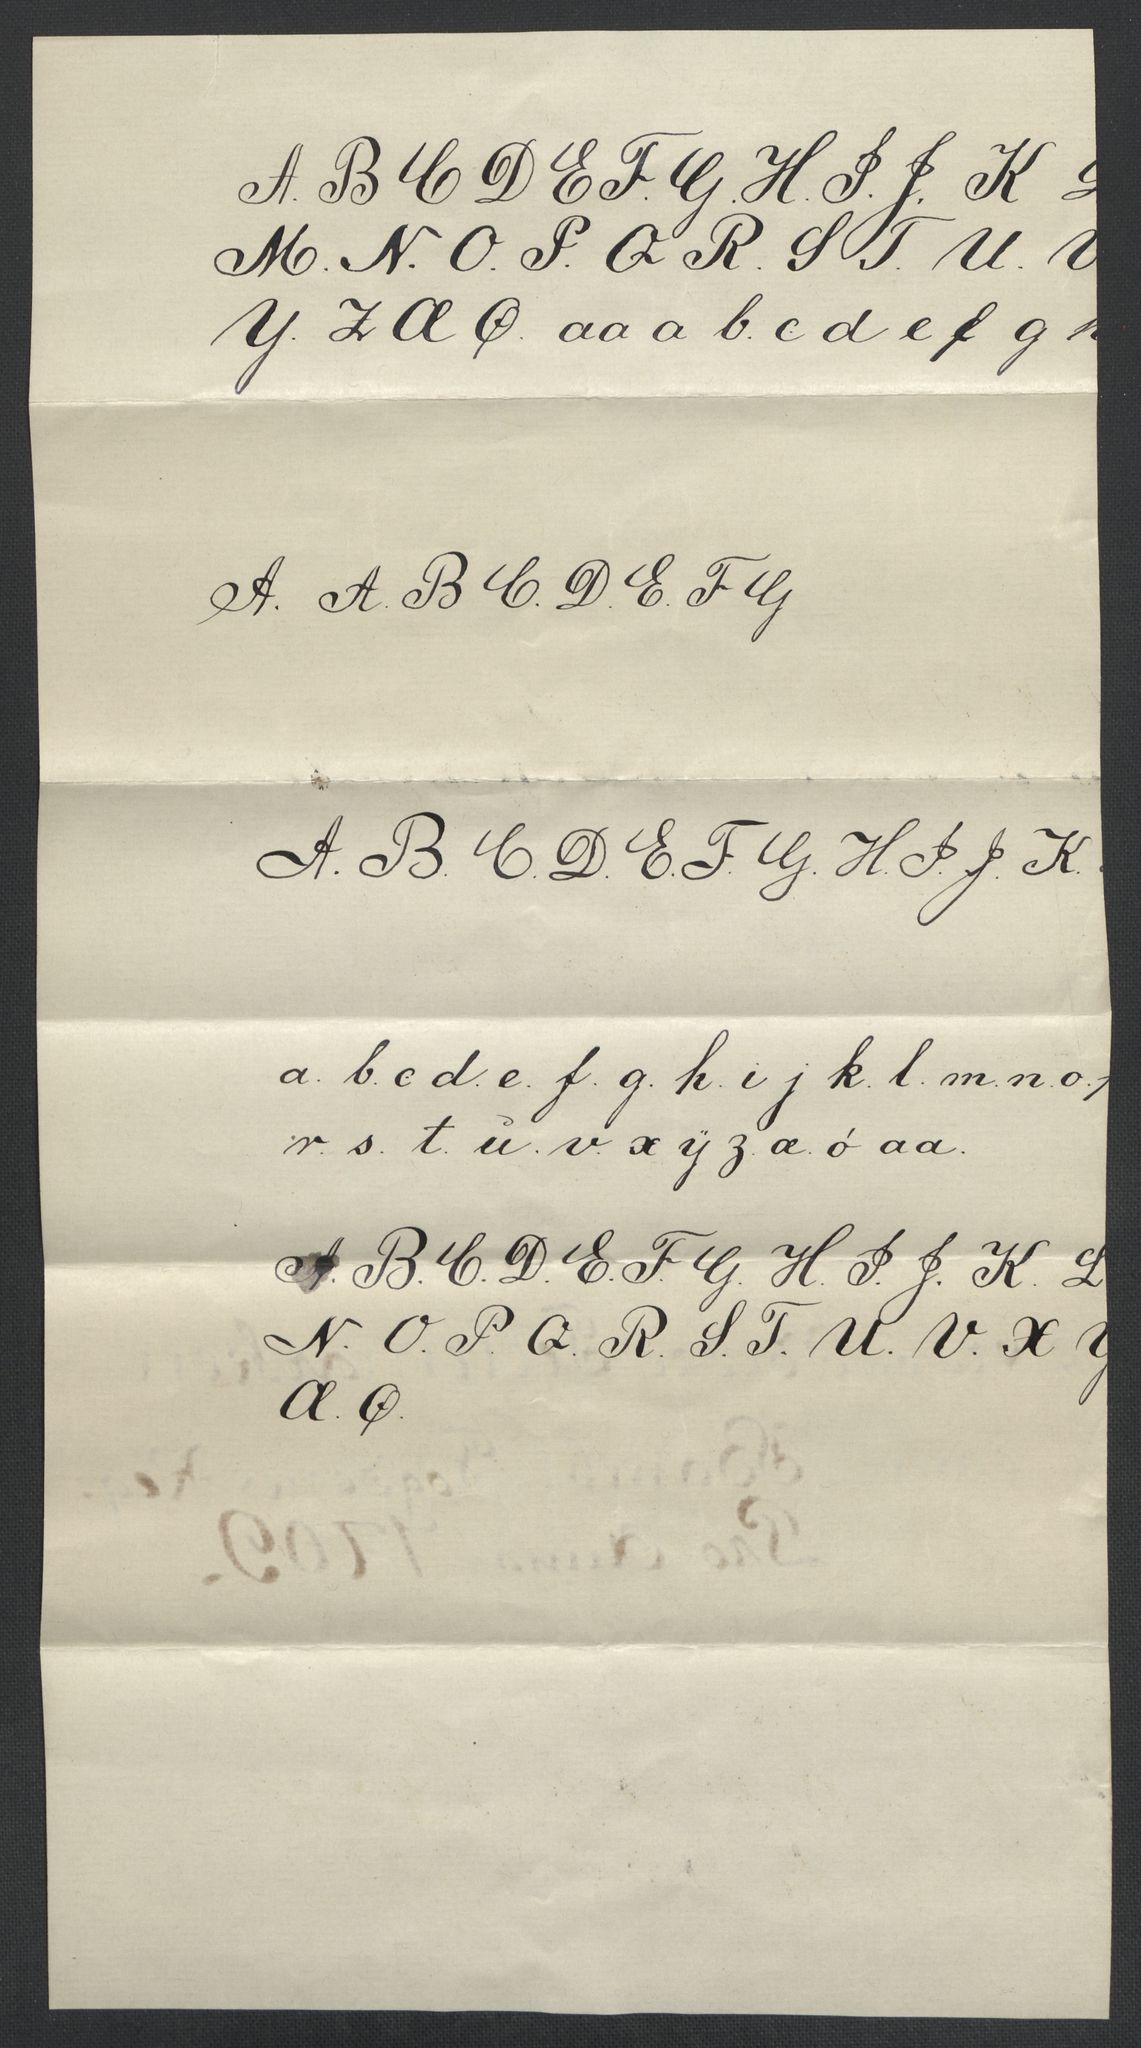 A. B C D E F. G. H. I. J. K L
M. N. O. P. Q R. S T. U. V
Y. Z Æ Ø. aa a b. c. d e f g h
A. A. B C. D. E. F G
A. B. C. D. E. F. G. H. I. J. K.
a. b. c d. e. f. g. h. i j k. l. m. n. o. p
r. s. t. u. v. x ÿ z. æ. ó aa.
A. B. C. D. E. F. G. H. I. J. K. L
N. O. P. Q. R. S. T. U. V. X Y
Æ. Ø.
1709.